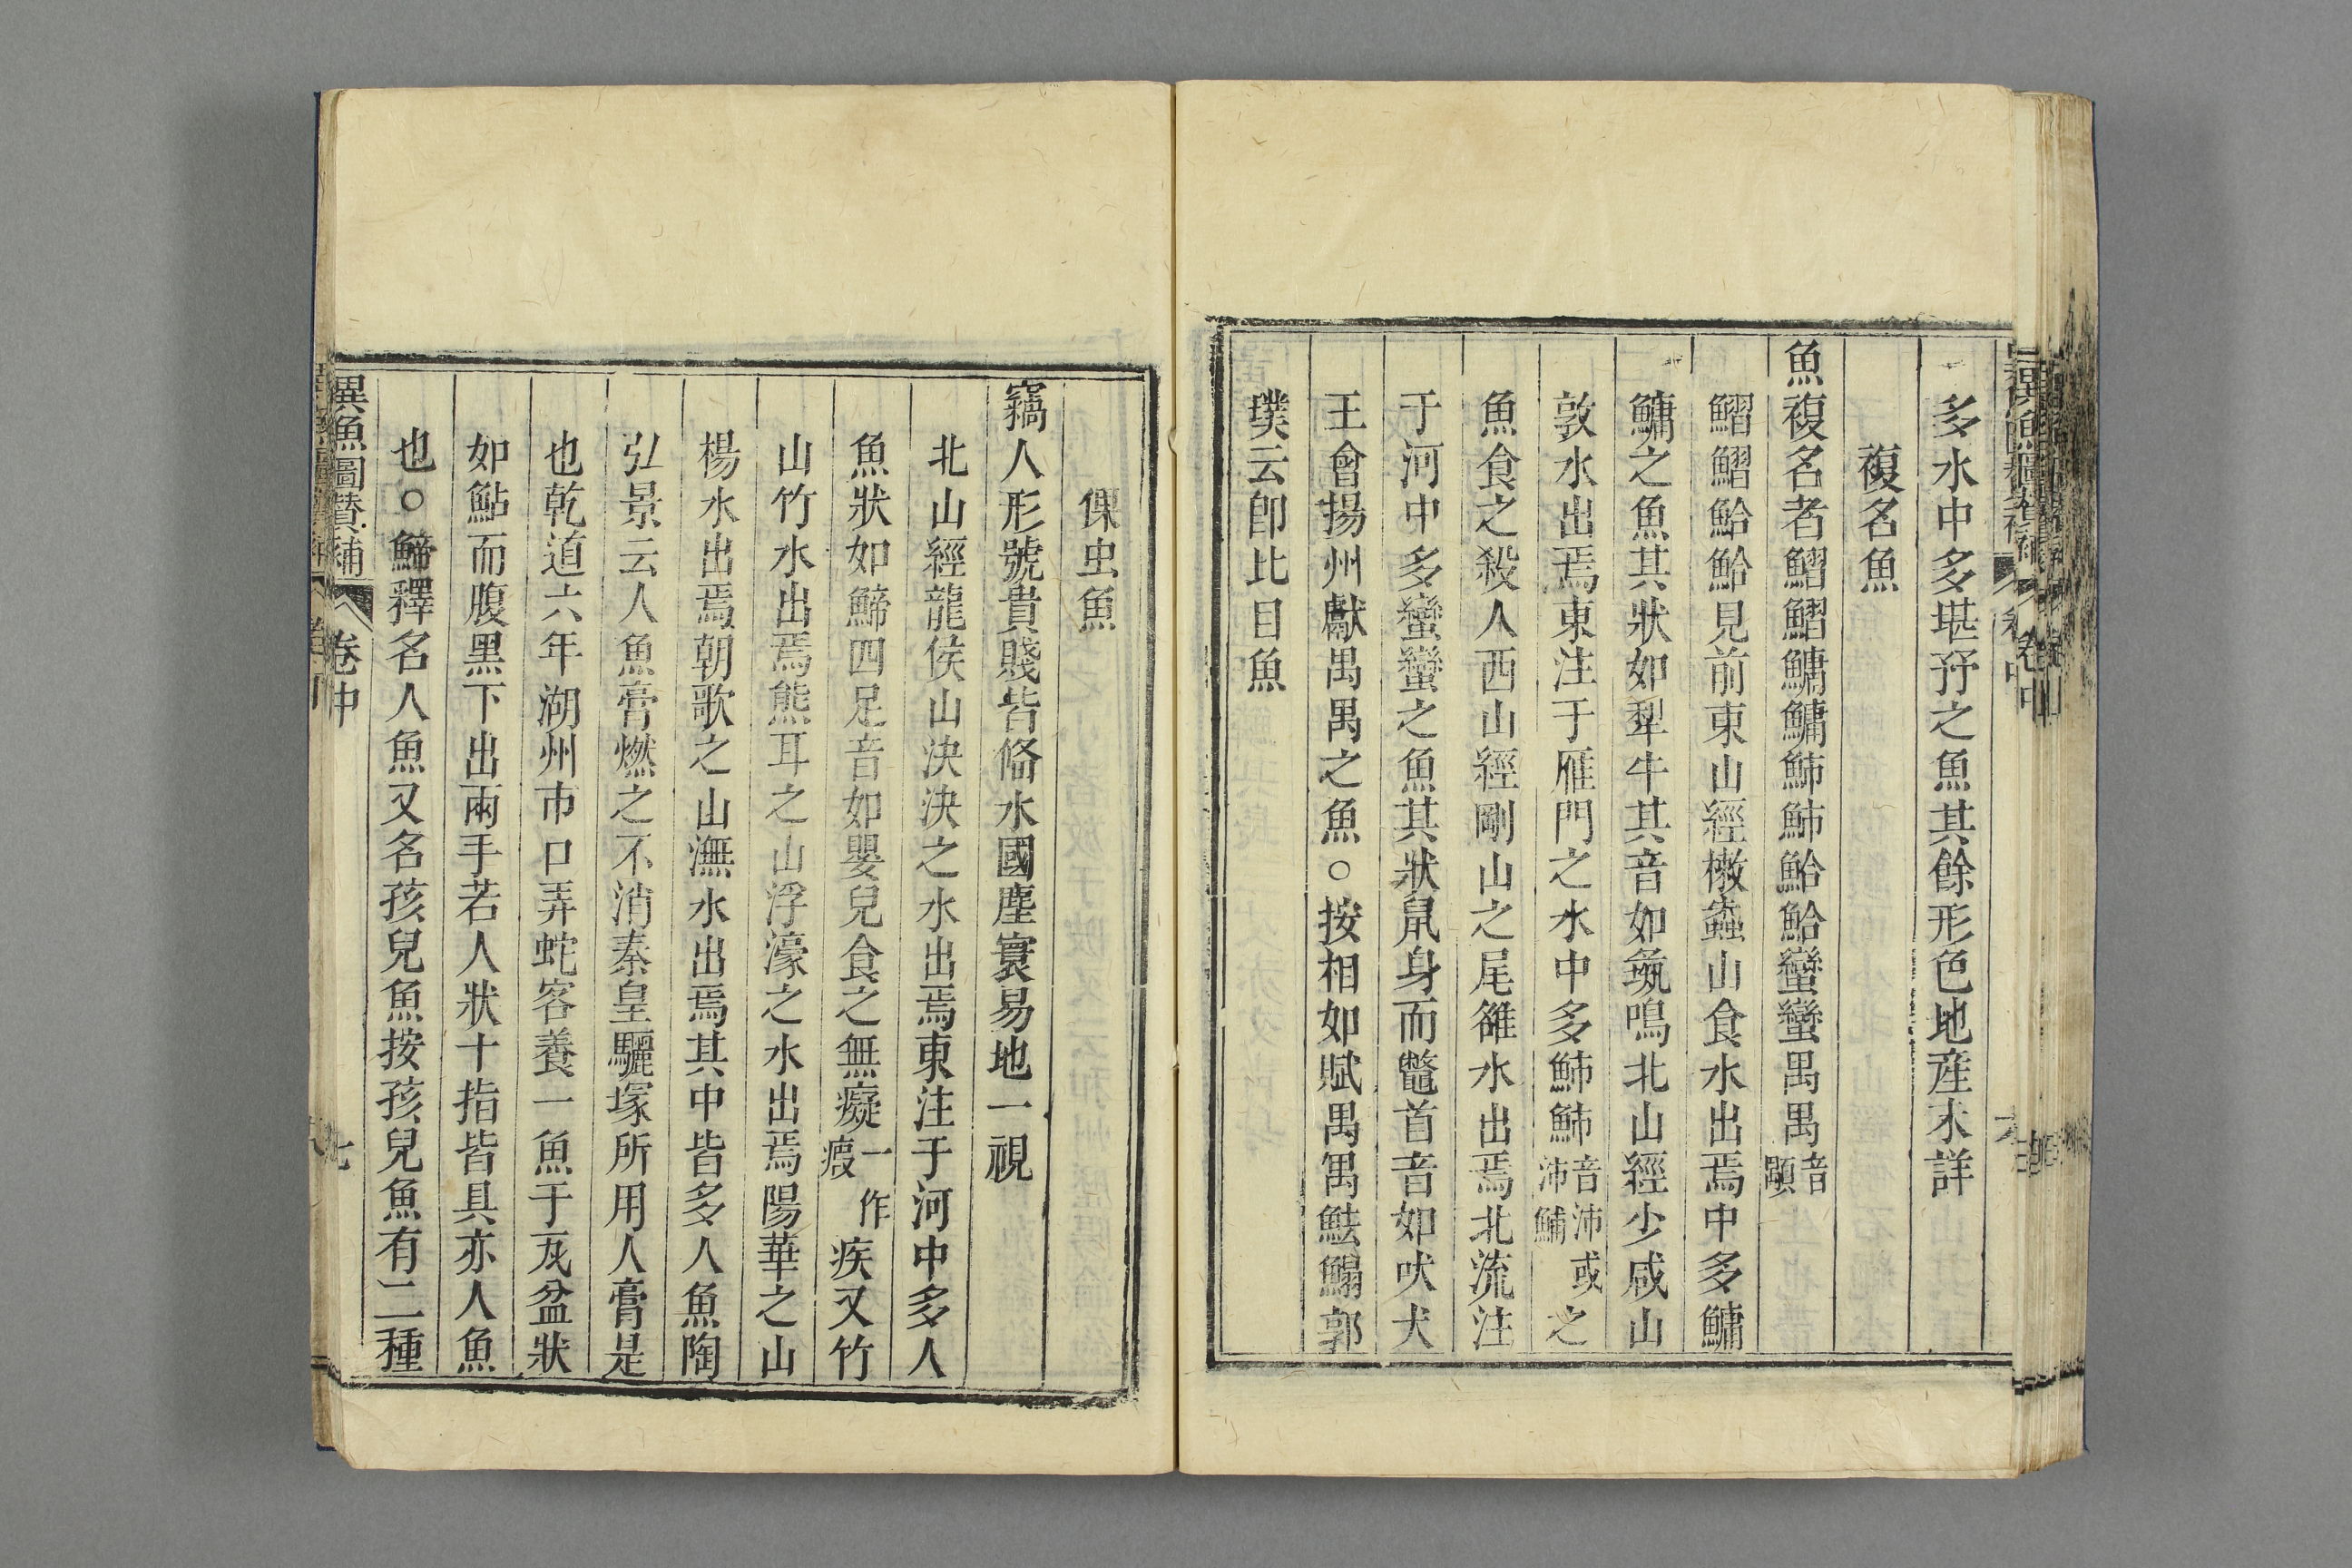 多水中多堪㐨之魚其餘形色地產未詳
複名魚
魚複名者鰼鰼鱅鱅䰽䰽鮯鮯蠻蠻禺禺音顒
鰼鰼鮯鮯見前東山經樕䖪山食水出焉中多鱅
鱅之魚其狀如犁牛其音如彘鳴北山經少咸山
敦水出焉東注于雁門之水中多䰽䰽音沛或沛鯆之
魚食之殺人西山經剛山之尾雒水出焉北流注
于河中多蠻蠻之魚其狀鼠身而鼈首音如吠犬
王會揚州獻禺禺之魚○按相如賦禺禺魼鰨郭
璞云卽比目魚
倮虫魚
竊人形號貴賤皆俻水國塵寰易地一視
北山經龍侯山決決之水出焉東注于河中多人
魚狀如䱱四足音如嬰兒食之無癡一作瘕疾又竹
山竹水出焉熊耳之山浮濠之水出焉陽華之山
楊水出焉朝歌之山潕水出焉其中皆多人魚陶
弘景云人魚膏燃之不消秦皇驪塚所用人膏是
也乾道六年湖州市口弄蛇客養一魚于瓦盆狀
如鮎而腹黑下出兩手若人狀十指皆具亦人魚
也○䱱釋名人魚又名孩兒魚按孩兒魚有二種
異魚圖贊補 卷中 七